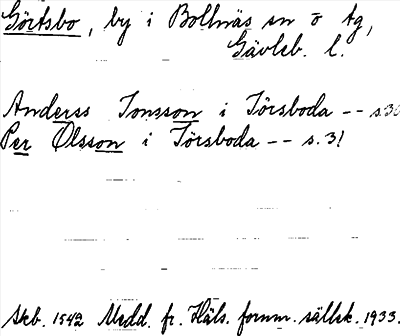 Görtsbo, by i Bollnäs sn o tg,
Gävleb. l.
Anderss Jonsson i Törsboda -- s.30
Per Olsson i Törsboda -- s.31
Skb. 1542 Medd. fr. Häls. fornm. sällsk. 1933.